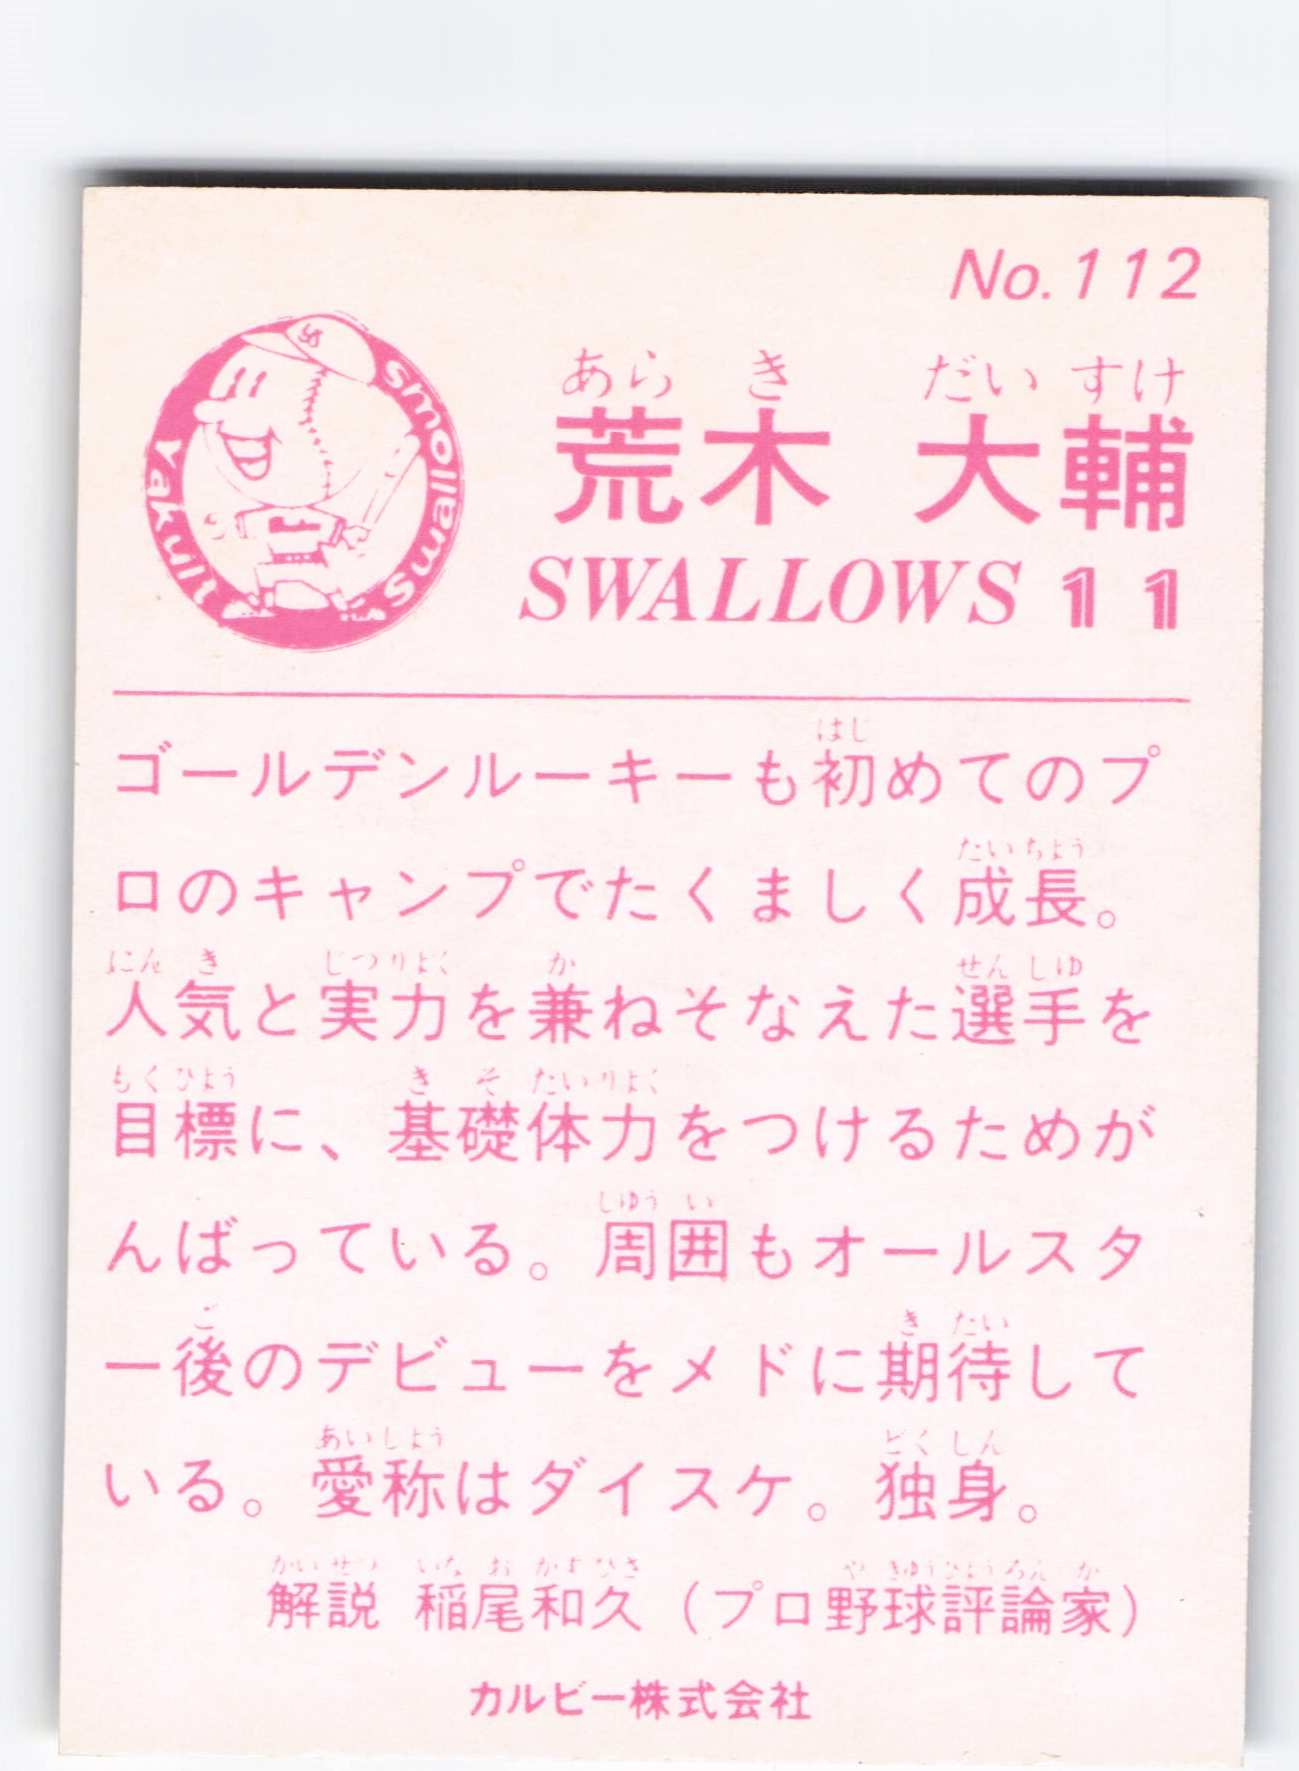 No.112
あらき だいすけ
荒木 大輔
Yakult Swallows
SWALLOWS 11
はじ
ゴールデンルーキーも初めてのプ
たいちょう
ロのキャンプでたくましく成長。
にんき じつりよく か せんしゆ
人気と実力を兼ねそなえた選手を
もくひょう きそたいりよく
目標に、基礎体力をつけるためが
しゆうい
んばっている。周囲もオールスタ
ご きたい
ー後のデビューをメドに期待して
あいしょう どくしん
いる。愛称はダイスケ。独身。
かいせつ いなおかずひさ やきゅうひょうろんか
解説 稲尾和久(プロ野球評論家)
カルビー株式会社